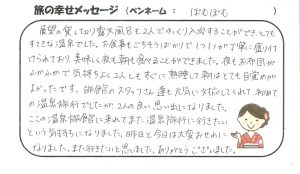 旅の幸せメッセージ（ペンネーム： ぽむぽむ ）
展望の貸しており露天風呂も2人でゆっくり入浴することができ、とても
すてきな温泉でした。お食事もごちそうばかりで1つ1つが丁寧に盛り付
けられており、美味しく夜も朝も食べることができました。夜もお布団が
ふかふかで気持ちよく2人ともすぐに熟睡して朝はとても目覚めが
よかったです。旅館のスタッフさん達も元気に対応してくれて初めて
の温泉旅行でしたが、2人の良い思い出になりました。
ここの温泉旅館に来れてまた温泉旅行に行きたい
という気持ちになりました。昨日と今日は大変お世話に
なりました。また行きたいと思いました。ありがとうございました。